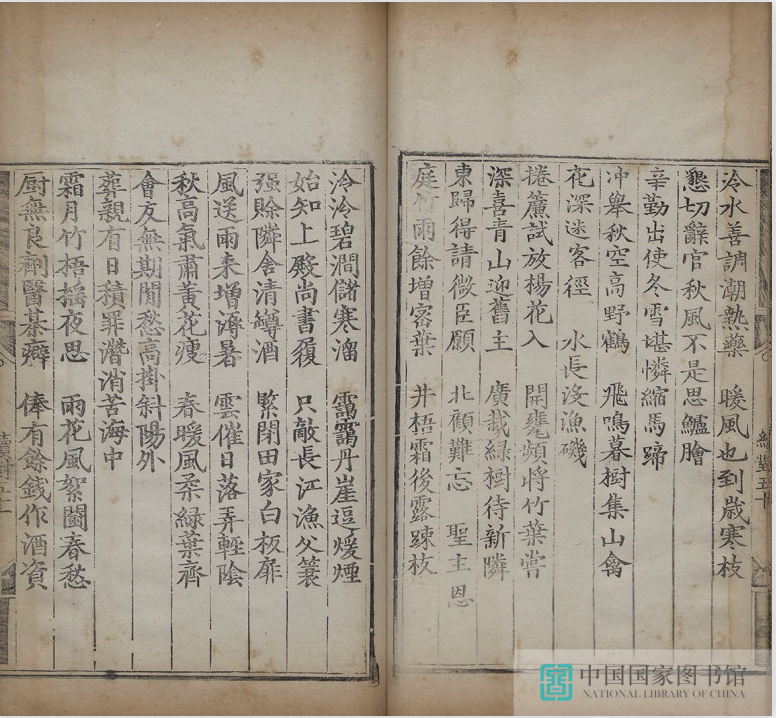 冷水善調潮熱藥　暖風也到歲寒枝
懇切辭官秋風不是思鱸膾
辛勤出使冬雪堪憐縮馬蹄
冲舉秋空高野鶴　飛鳴暮樹集山禽
花深迷客徑　水長沒漁磯
捲簾試放楊花入　開甕頻將竹葉嘗
深喜青山迎舊主　廣栽綠樹待新隣
東歸得請微臣願　北顧難忘聖主恩
庭竹雨餘增密葉　井梧霜後露踈枝
泠泠碧澗儲寒溜　靄靄丹崖逗煖煙
始知上殿尚書履　只敵長江漁父簑
强賒隣舍清罇酒　緊閉田家白板扉
風送雨来增溽暑　雲催日落弄輕陰
秋高氣肅黃花瘦　春暖風柔綠葉齊
會友無期閒愁高掛斜陽外
葬親有日積罪潛消苦海中
霜月竹梧搖夜思　雨花風絮鬪春愁
厨無良劑醫棊癖　俸有餘錢作酒資
中国国家图书馆
NATIONAL LIBRARY OF CHINA